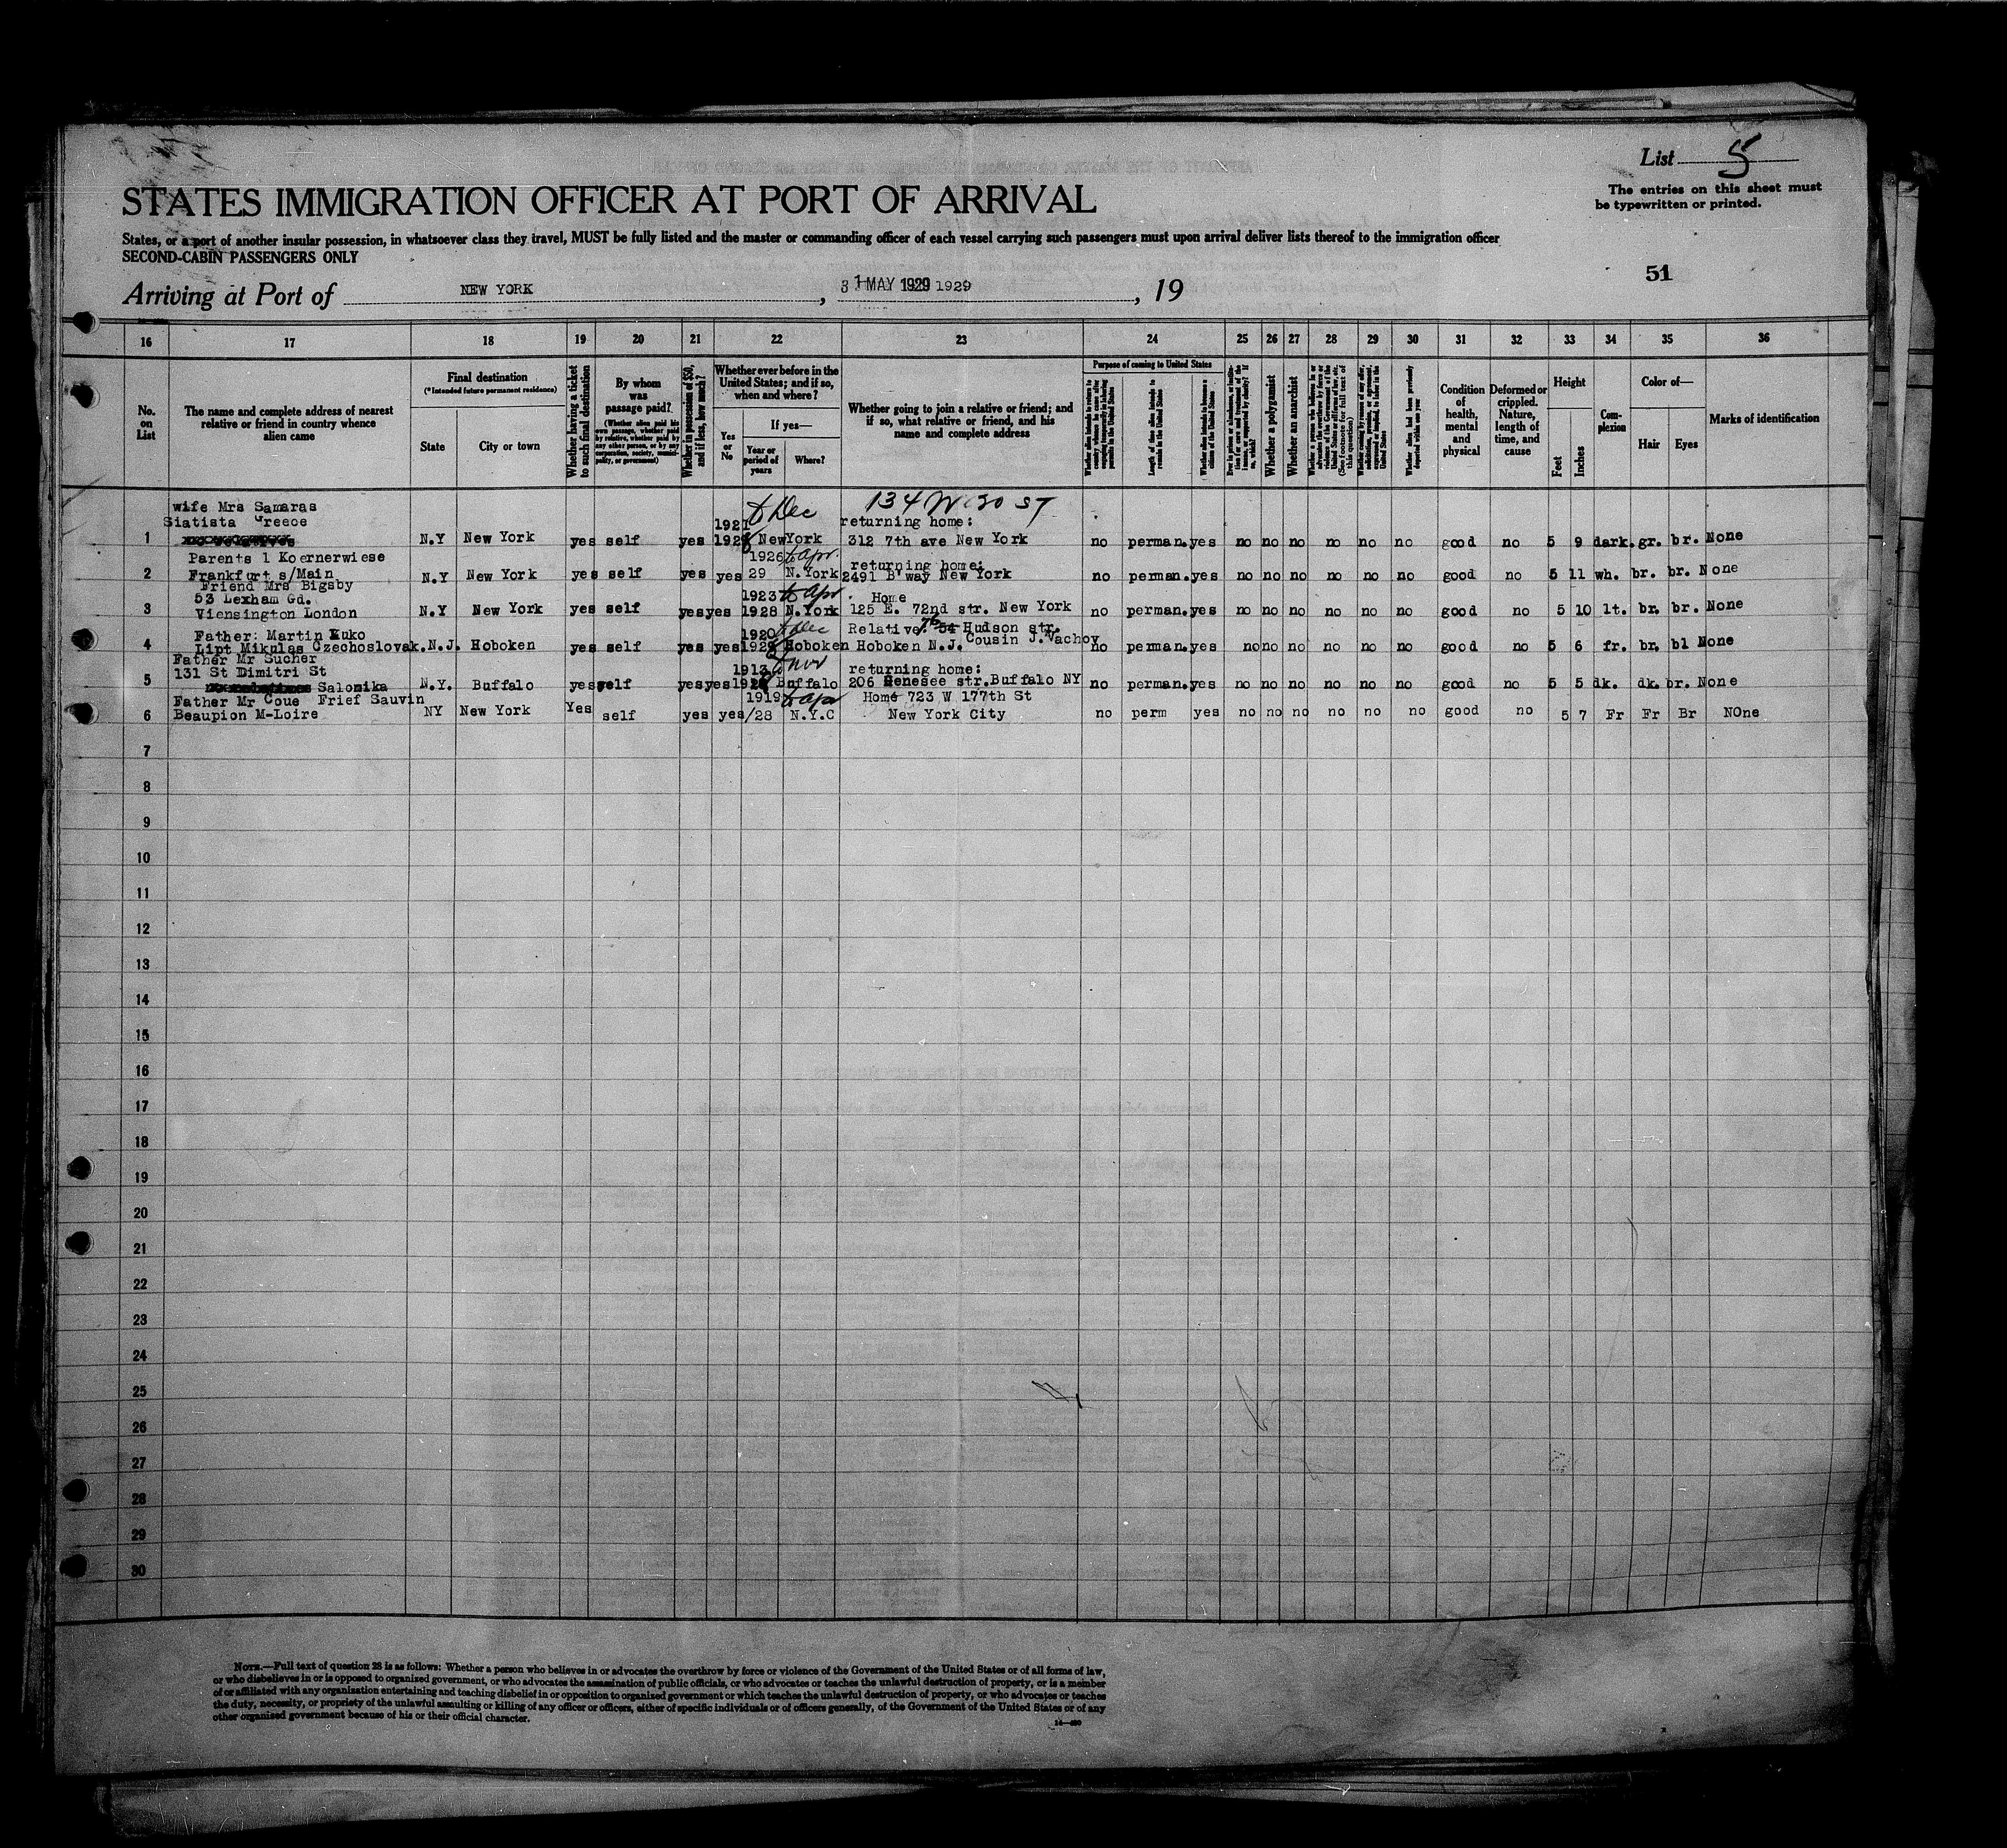 List 5
The entries on this sheet must
be typewritten or printed.
STATES IMMIGRATION OFFICER AT PORT OF ARRIVAL
States, or a port of another insular possession, in whatsoever class they travel, MUST be fully listed and the master or commanding officer of each vessel carrying such passengers must upon arrival deliver lists thereof to the immigration officer
SECOND-CABIN PASSENGERS ONLY
51
Arriving at Port of NEW YORK, MAY 1929 1929, 19
16 17 18 19 20 21 22 23 24 25 26 27 28 29 30 31 32 33 34 35 36
No. on List
The name and complete address of nearest relative or friend in country whence alien came
Final destination
(*Intended future permanent residence)
State
City or town
Whether having a ticket to such final destination
By whom was passage paid?
(Whether alien paid his own passage, whether paid by relative, whether paid by any other person, or by any corporation, society, municipality, or government)
Whether in possession of $50, and if less, how much?
Whether ever before in the United States; and if so, when and where?
Yes or No
If yes—
Year or period of years
Where?
Whether going to join a relative or friend; and if so, what relative or friend, and his name and complete address
Purpose of coming to United States
Length of time alien intends to remain in the United States
Whether alien intends to become a citizen of the United States
Whether a polygamist
Whether an anarchist
(See footnote for full text of this question)
Whether alien had been previously deported within one year
Condition of health, mental and physical
Deformed or crippled. Nature, length of time, and cause
Height
Feet
Inches
Complexion
Color of—
Hair
Eyes
Marks of identification
wife Mrs Samaras
Siatista Greece
1 N.Y New York yes self yes 1921 Dec New York 134 W 30 ST returning home: 312 7th ave New York no perman. yes no no no no no no good no 5 9 dark. gr. br. None
Parents l Koernerwiese
2 Frankfurt s/Main N.Y New York yes self yes yes 1926 to Apr. 29 N.York returning home: 2491 B'way New York no perman. yes no no no no no no good no 5 11 wh. br. br. None
Friend Mrs Bigsby
53 Lexham Gd.
3 Viensington London N.Y New York yes self yes yes 1923 to Apr. 1928 N.York Home 125 E. 72nd str. New York no perman. yes no no no no no no good no 5 10 lt. br. br. None
Father: Martin Kuko
4 Lipt Mikulas Czechoslovak. N.J. Hoboken yes self yes yes 1920 to Dec Hoboken Relative: Hudson str. Hoboken N.J. Cousin J.Vachov no perman. yes no no no no no no good no 5 6 fr. br. bl None
Father Mr Sucher
131 St Dimitri St
5 Salonika N.Y. Buffalo yes self yes yes 1913 to Nov Buffalo returning home: 206 Genesee str. Buffalo NY no perman. yes no no no no no no good no 5 5 dk. dk. br. None
Father Mr Coue Frief Sauvin
6 Beaupion M-Loire NY New York Yes self yes yes 1919 to Apr /28 N.Y.C Home 723 W 177th St New York City no perm yes no no no no no no good no 5 7 Fr Fr Br NOne
7
8
9
10
11
12
13
14
15
16
17
18
19
20
21
22
23
24
25
26
27
28
29
30
NOTE.—Full text of question 28 is as follows: Whether a person who believes in or advocates the overthrow by force or violence of the Government of the United States or of all forms of law,
or who disbelieves in or is opposed to organized government, or who advocates the assassination of public officials, or who advocates or teaches the unlawful destruction of property, or is a member
of or affiliated with any organization entertaining and teaching disbelief in or opposition to organized government or which teaches the unlawful destruction of property, or who advocates or teaches
the duty, necessity, or propriety of the unlawful assaulting or killing of any officer or officers, either of specific individuals or of officers generally, of the Government of the United States or of any
other organized government because of his or their official character.